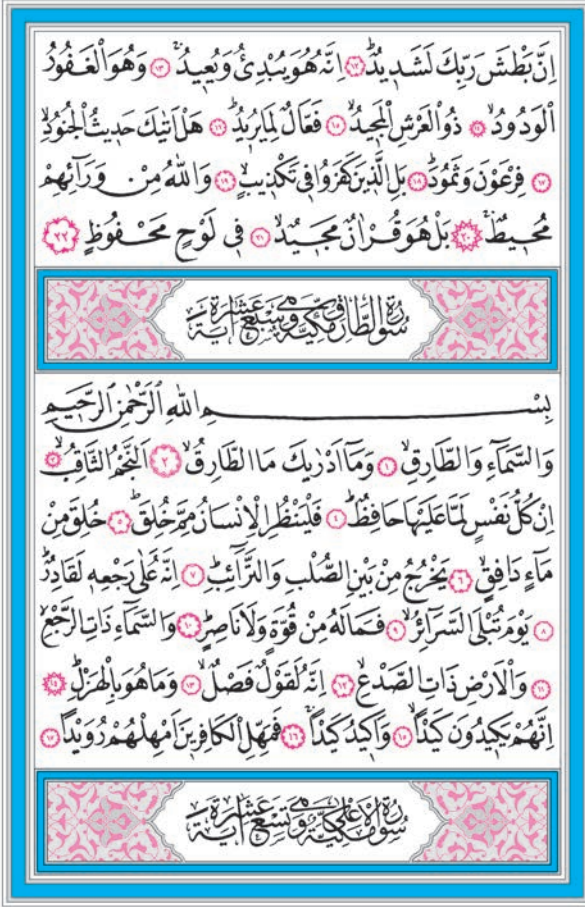 اِنَّ بَطْشَ رَبِّكَ لَشَدِيدٌۜ ﴿١٢﴾ اِنَّهُ هُوَ يُبْدِئُ وَيُعِيدُۚ ﴿١٣﴾ وَهُوَ الْغَفُورُ
الْوَدُودُۙ ﴿١٤﴾ ذُو الْعَرْشِ الْمَجِيدُۙ ﴿١٥﴾ فَعَّالٌ لِمَا يُرِيدُۜ ﴿١٦﴾ هَلْ اَتٰيكَ حَدِيثُ الْجُنُودِۙ
﴿١٧﴾ فِرْعَوْنَ وَثَمُودَۜ ﴿١٨﴾ بَلِ الَّذِينَ كَفَرُوا فِي تَكْذِيبٍۙ ﴿١٩﴾ وَاللّٰهُ مِنْ وَرَآئِهِمْ
مُحِيطٌۚ ﴿٢٠﴾ بَلْ هُوَ قُرْاٰنٌ مَجِيدٌۙ ﴿٢١﴾ فِي لَوْحٍ مَحْفُوظٍ ﴿٢٢﴾
سُورَةُ الطَّارِقِ مَكِّيَّةٌ وَهِيَ سَبْعَ عَشْرَةَ اٰيَةً
بِسْمِ اللّٰهِ الرَّحْمٰنِ الرَّحِيمِ
وَالسَّمَآءِ وَالطَّارِقِۙ ﴿١﴾ وَمَآ اَدْرٰيكَ مَا الطَّارِقُۙ ﴿٢﴾ اَلنَّجْمُ الثَّاقِبُۙ ﴿٣﴾
اِنْ كُلُّ نَفْسٍ لَمَّا عَلَيْهَا حَافِظٌۜ ﴿٤﴾ فَلْيَنْظُرِ الْاِنْسَانُ مِمَّ خُلِقَۜ ﴿٥﴾ خُلِقَ مِنْ
مَآءٍ دَافِقٍۙ ﴿٦﴾ يَخْرُجُ مِنْ بَيْنِ الصُّلْبِ وَالتَّرَآئِبِۜ ﴿٧﴾ اِنَّهُ عَلٰى رَجْعِهِ لَقَادِرٌۜ
﴿٨﴾ يَوْمَ تُبْلَى السَّرَآئِرُۙ ﴿٩﴾ فَمَا لَهُ مِنْ قُوَّةٍ وَلَا نَاصِرٍۜ ﴿١٠﴾ وَالسَّمَآءِ ذَاتِ الرَّجْعِۙ
﴿١١﴾ وَالْاَرْضِ ذَاتِ الصَّدْعِۙ ﴿١٢﴾ اِنَّهُ لَقَوْلٌ فَصْلٌۙ ﴿١٣﴾ وَمَا هُوَ بِالْهَزْلِۜ ﴿١٤﴾
اِنَّهُمْ يَكِيدُونَ كَيْدًاۙ ﴿١٥﴾ وَاَكِيدُ كَيْدًاۚ ﴿١٦﴾ فَمَهِّلِ الْكَافِرِينَ اَمْهِلْهُمْ رُوَيْدًا ﴿١٧﴾
سُورَةُ الْاَعْلٰى مَكِّيَّةٌ وَهِيَ تِسْعَ عَشْرَةَ اٰيَةً